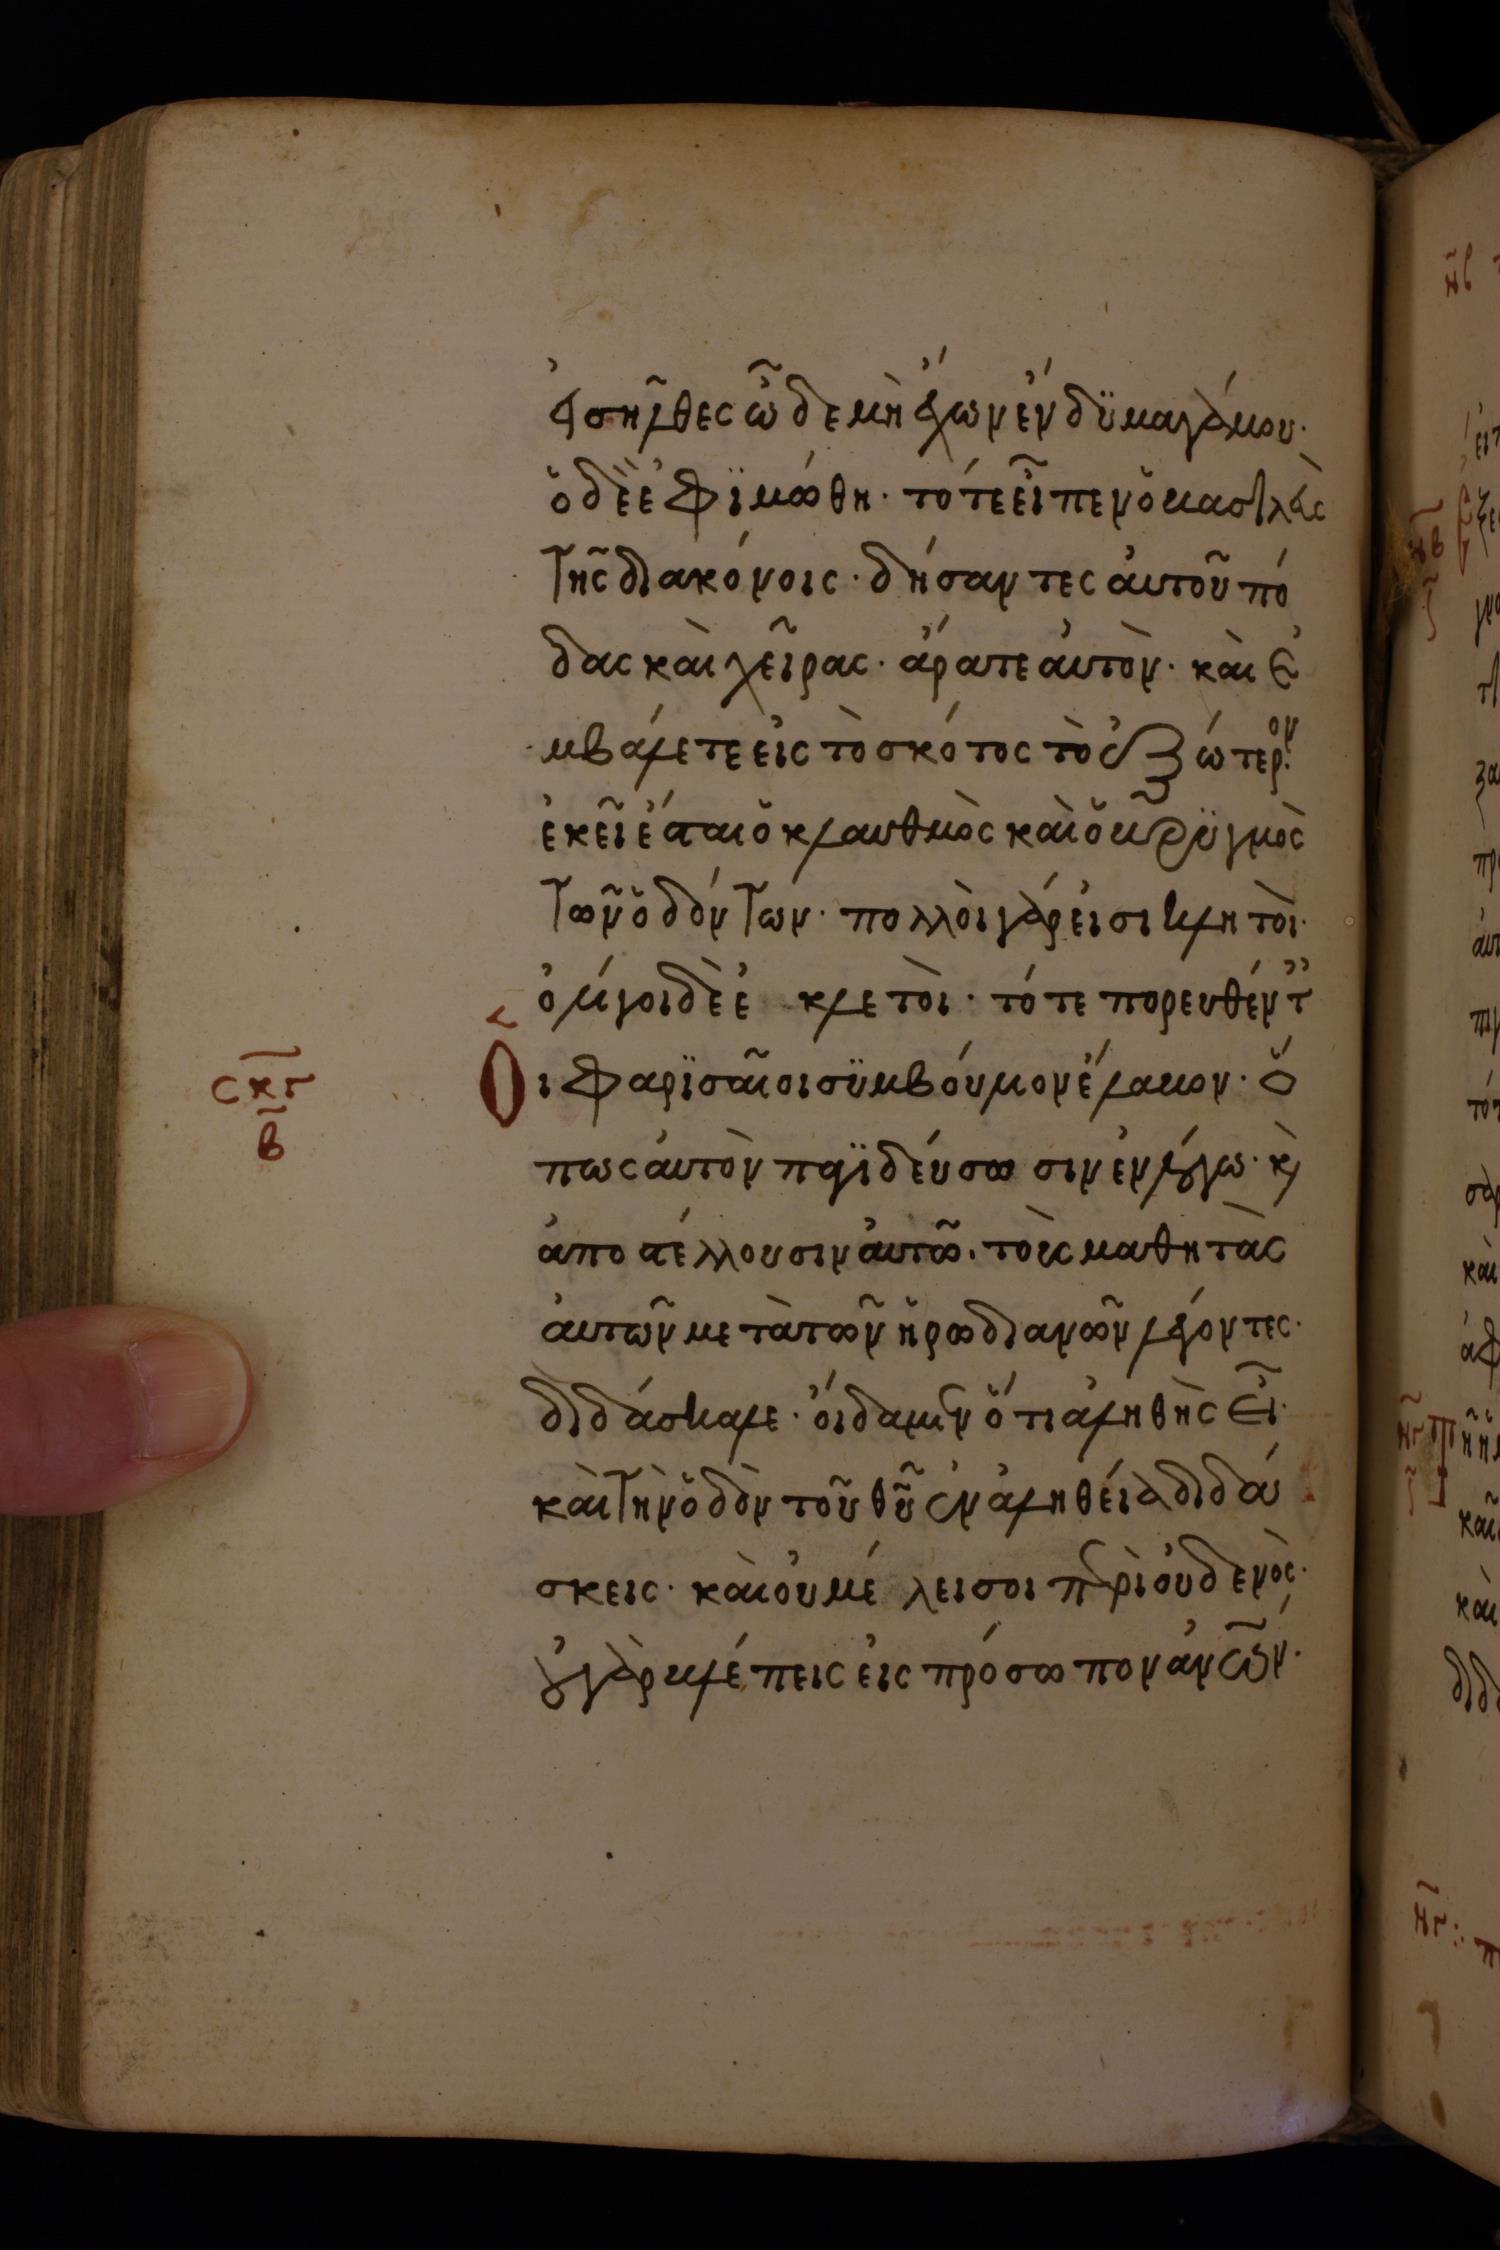 ἐισῆλθες ὧδε μὴ ἔχων ἔνδϋμα γάμου·
ὁ δὲ ἐφϊμώθη· τότε εἶπεν ὁ βασιλεὺς
τῆς διακόνοις· δήσαντες ἀυτοῦ πό
δας καὶ χεῖρας· ἄρατε ἀυτὸν· καὶ ἐ
μβάλετε εἰς τὸ σκότος τὸ ἐξώτερον
ἐκεῖ ἔσται ὁ κλαυθμὸς καὶ ὁ βρϋγμὸς
τῶν ὁδόντων· πολλὸι γάρ ἐισι κλητὸι·
ὀλίγοι δὲ ἐκλετὸι· τότε πορευθέντ
Οι φαρϊσαῖοι σϋμβόυλιον έλαβον· ὅ
πως ἀυτὸν παγϊδέυσωσιν ἐν λόγω· κὲ
ἀποστέλλουσιν ἀυτῶ· τοὺς μαθητὰς
ἀυτῶν μετὰ τῶν ἡρωδιανῶν λέγοντες·
διδάσκαλε· ὄιδαμεν ὅτι ἀληθὴς εἶ·
καὶ τὴν ὁδὸν τοῦ θῦ ἐν ἀληθέια διδά
σκεις· καὶ ὀυ μέλει σοι περὶ ὀυδενὸς·
ὀυ γὰρ βλέπεις ἐις πρόσωπον ἀνων·
σκγ
β